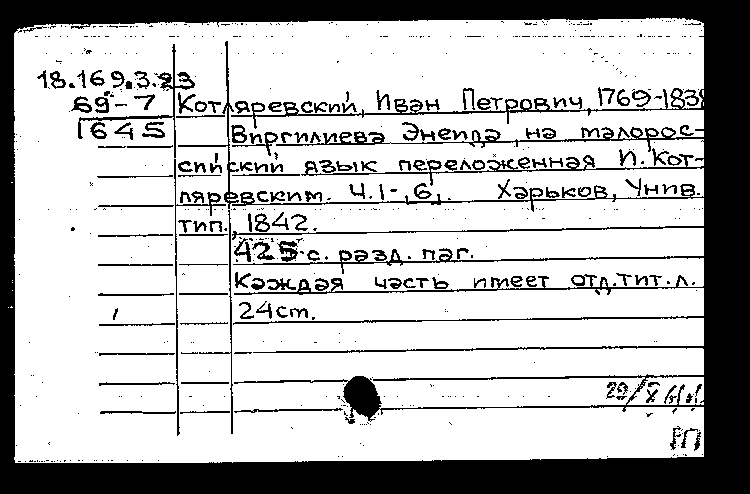 18.169.3.23
69-7
1645
Котляревский, Иван Петрович, 1769-1838
Виргилиева Энеида, на малорос-
сийский язык переложенная И. Кот-
ляревским. Ч.1-[6]. Харьков, Унив.
тип., 1842.
425 с. разд. паг.
Каждая часть имеет отд. тит. л.
24 ст.
29/X
РП